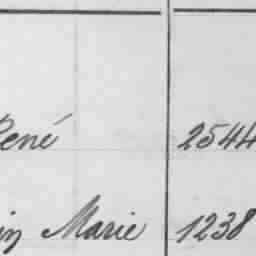 René 2544
Marie 1238